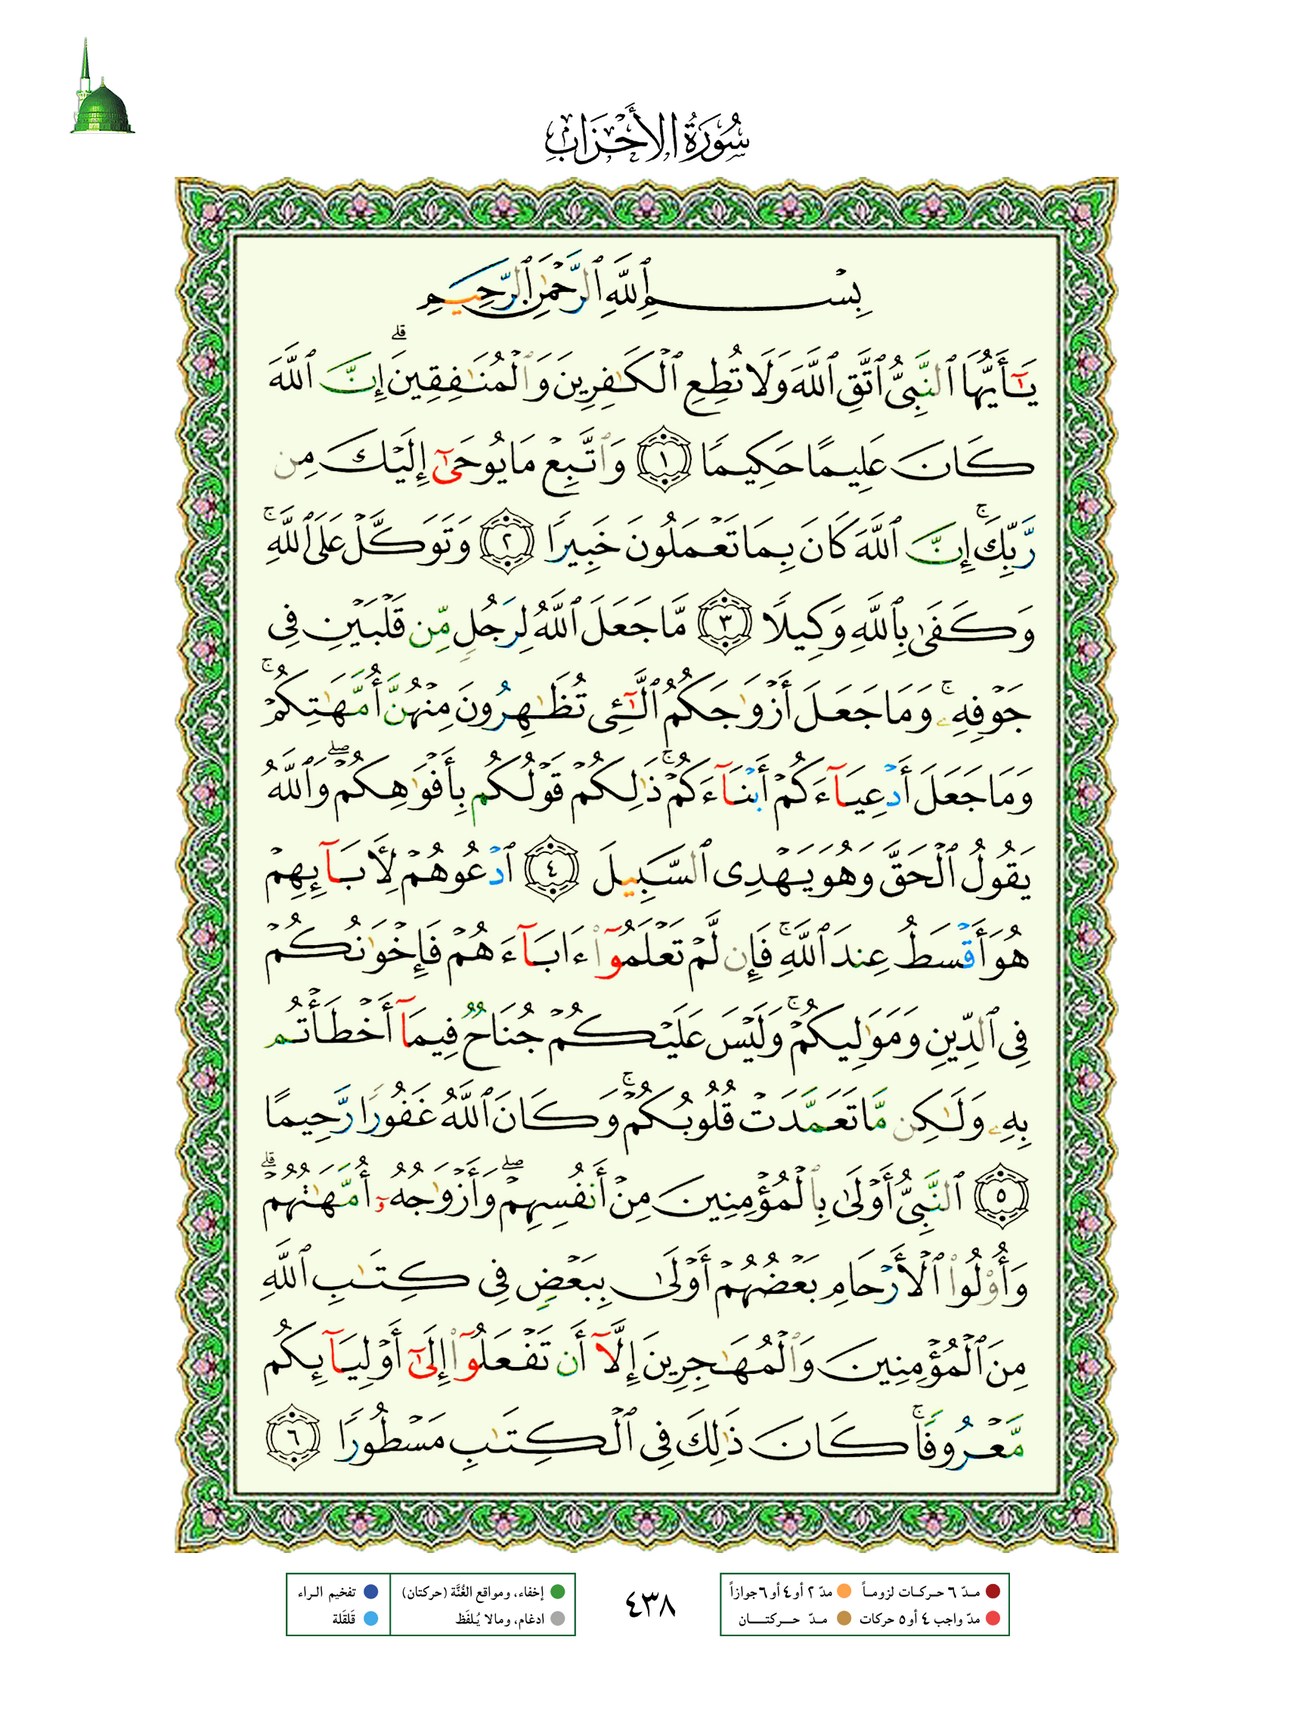 سُورَةُ الأَحْزَابِ
بِسْمِ ٱللَّهِ ٱلرَّحْمَٰنِ ٱلرَّحِيمِ
يَٰٓأَيُّهَا ٱلنَّبِىُّ ٱتَّقِ ٱللَّهَ وَلَا تُطِعِ ٱلْكَٰفِرِينَ وَٱلْمُنَٰفِقِينَ ۗ إِنَّ ٱللَّهَ
كَانَ عَلِيمًا حَكِيمًا ١ وَٱتَّبِعْ مَا يُوحَىٰٓ إِلَيْكَ مِن
رَّبِّكَ ۚ إِنَّ ٱللَّهَ كَانَ بِمَا تَعْمَلُونَ خَبِيرًا ٢ وَتَوَكَّلْ عَلَى ٱللَّهِ ۚ
وَكَفَىٰ بِٱللَّهِ وَكِيلًا ٣ مَّا جَعَلَ ٱللَّهُ لِرَجُلٍ مِّن قَلْبَيْنِ فِى
جَوْفِهِۦ ۚ وَمَا جَعَلَ أَزْوَٰجَكُمُ ٱلَّٰٓـِٔى تُظَٰهِرُونَ مِنْهُنَّ أُمَّهَٰتِكُمْ ۚ
وَمَا جَعَلَ أَدْعِيَآءَكُمْ أَبْنَآءَكُمْ ۚ ذَٰلِكُمْ قَوْلُكُم بِأَفْوَٰهِكُمْ ۖ وَٱللَّهُ
يَقُولُ ٱلْحَقَّ وَهُوَ يَهْدِى ٱلسَّبِيلَ ٤ ٱدْعُوهُمْ لِأَبَآئِهِمْ
هُوَ أَقْسَطُ عِندَ ٱللَّهِ ۚ فَإِن لَّمْ تَعْلَمُوٓا۟ ءَابَآءَهُمْ فَإِخْوَٰنُكُمْ
فِى ٱلدِّينِ وَمَوَٰلِيكُمْ ۚ وَلَيْسَ عَلَيْكُمْ جُنَاحٌ فِيمَآ أَخْطَأْتُم
بِهِۦ وَلَٰكِن مَّا تَعَمَّدَتْ قُلُوبُكُمْ ۚ وَكَانَ ٱللَّهُ غَفُورًا رَّحِيمًا
٥ ٱلنَّبِىُّ أَوْلَىٰ بِٱلْمُؤْمِنِينَ مِنْ أَنفُسِهِمْ ۖ وَأَزْوَٰجُهُۥٓ أُمَّهَٰتُهُمْ ۗ
وَأُو۟لُوا۟ ٱلْأَرْحَامِ بَعْضُهُمْ أَوْلَىٰ بِبَعْضٍ فِى كِتَٰبِ ٱللَّهِ
مِنَ ٱلْمُؤْمِنِينَ وَٱلْمُهَٰجِرِينَ إِلَّآ أَن تَفْعَلُوٓا۟ إِلَىٰٓ أَوْلِيَآئِكُم
مَّعْرُوفًا ۚ كَانَ ذَٰلِكَ فِى ٱلْكِتَٰبِ مَسْطُورًا ٦
مدّ ٦ حركات لزوماً مدّ ٢ أو ٤ أو ٦ جوازاً
مدّ واجب ٤ أو ٥ حركات مدّ حركتان
٤٣٨
إخفاء، ومواقع الغُنَّة (حركتان) تفخيم الراء
ادغام، ومالا يُلفَظ قلقلة